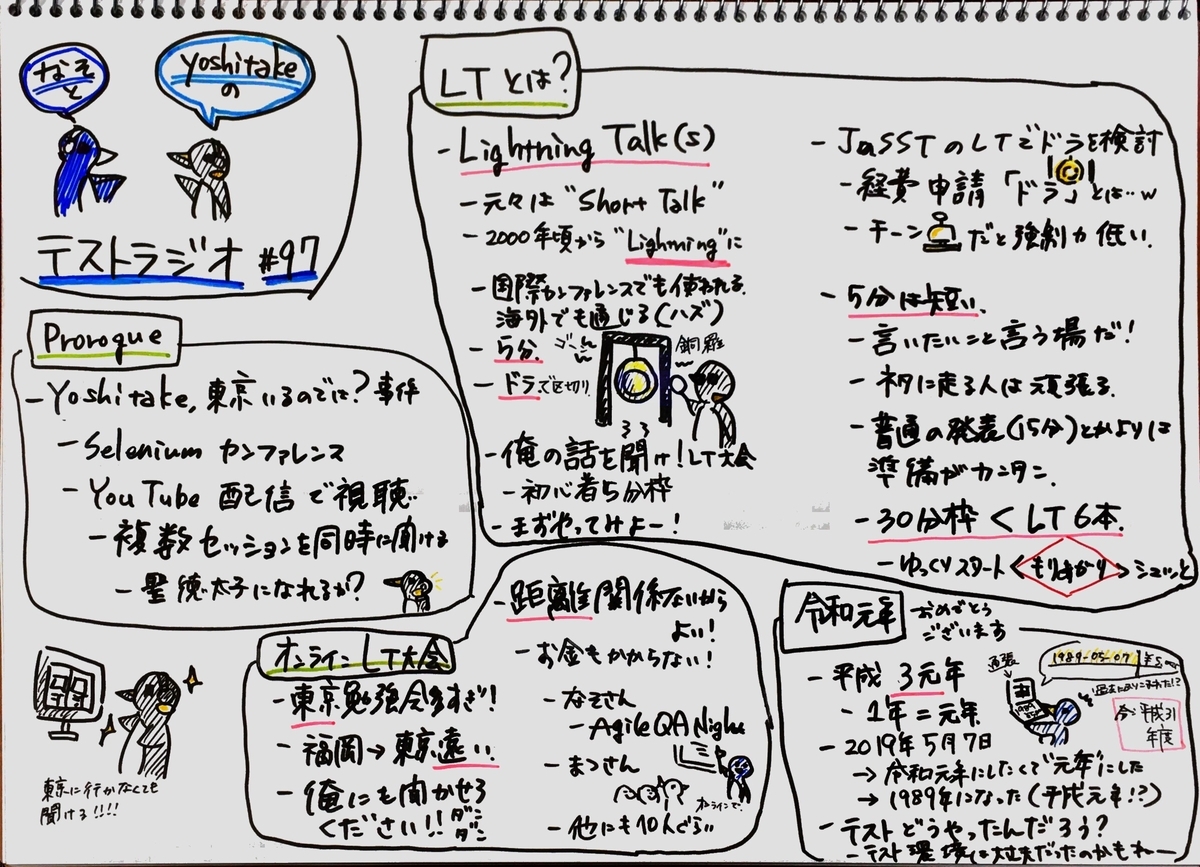 なそと
yoshitakeの
テストラジオ #97
Prorogue
- Yoshitake, 東京いるのでは?事件
- Selenium カンファレンス
- YouTube 配信で視聴
- 複数セッションを同時に聞ける
- 聖徳太子になれるか?
東京に行かなくても
聞ける!!!!
LTとは?
- Lightning Talk(s)
- 元々は "Short Talk"
- 2000年頃から "Lightning"に
- 国際カンファレンスでも使われる
海外でも通じる(ハズ)
- 5分
- ドラで区切り
ゴーん
銅羅
- 俺の話を聞け!LT大会
- 初心者5分枠
- まずやってみよー!
- JaSSTのLTでドラを検討
- 経費申請「ドラ」とは…w
- チーンだと強制力低い.
- 5分は短い.
- 言いたいこと言う場だ!
- ネタに走る人は頑張る.
- 普通の発表(15分)とかよりは
準備がカンタン.
- 30分枠 < LT 6本.
- ゆっくりスタート もりあがり シュッと
オンラインLT大会
- 東京勉強会多すぎ!
- 福岡→東京遠い
- 俺にも聞かせろ
ください!! ダンダン
- 距離関係ないから
よい!
- お金もかからない!
- なそさん
- Agile QA Night
- まつさん
オンラインで.
- 他にも10人ぐらい
令和元年
おめでとう
ございます
- 平成 3元年
- 1年=元年
- 2019年5月7日
→ 令和元年にしたくて"元年"にした
→ 1989年になった(平成元年!?)
- テストどうやったんだろう?
- テスト環境は大丈夫だったのかもねー
通帳
1989-05-07
過去にふりこまれた!?
今、平成31
年度